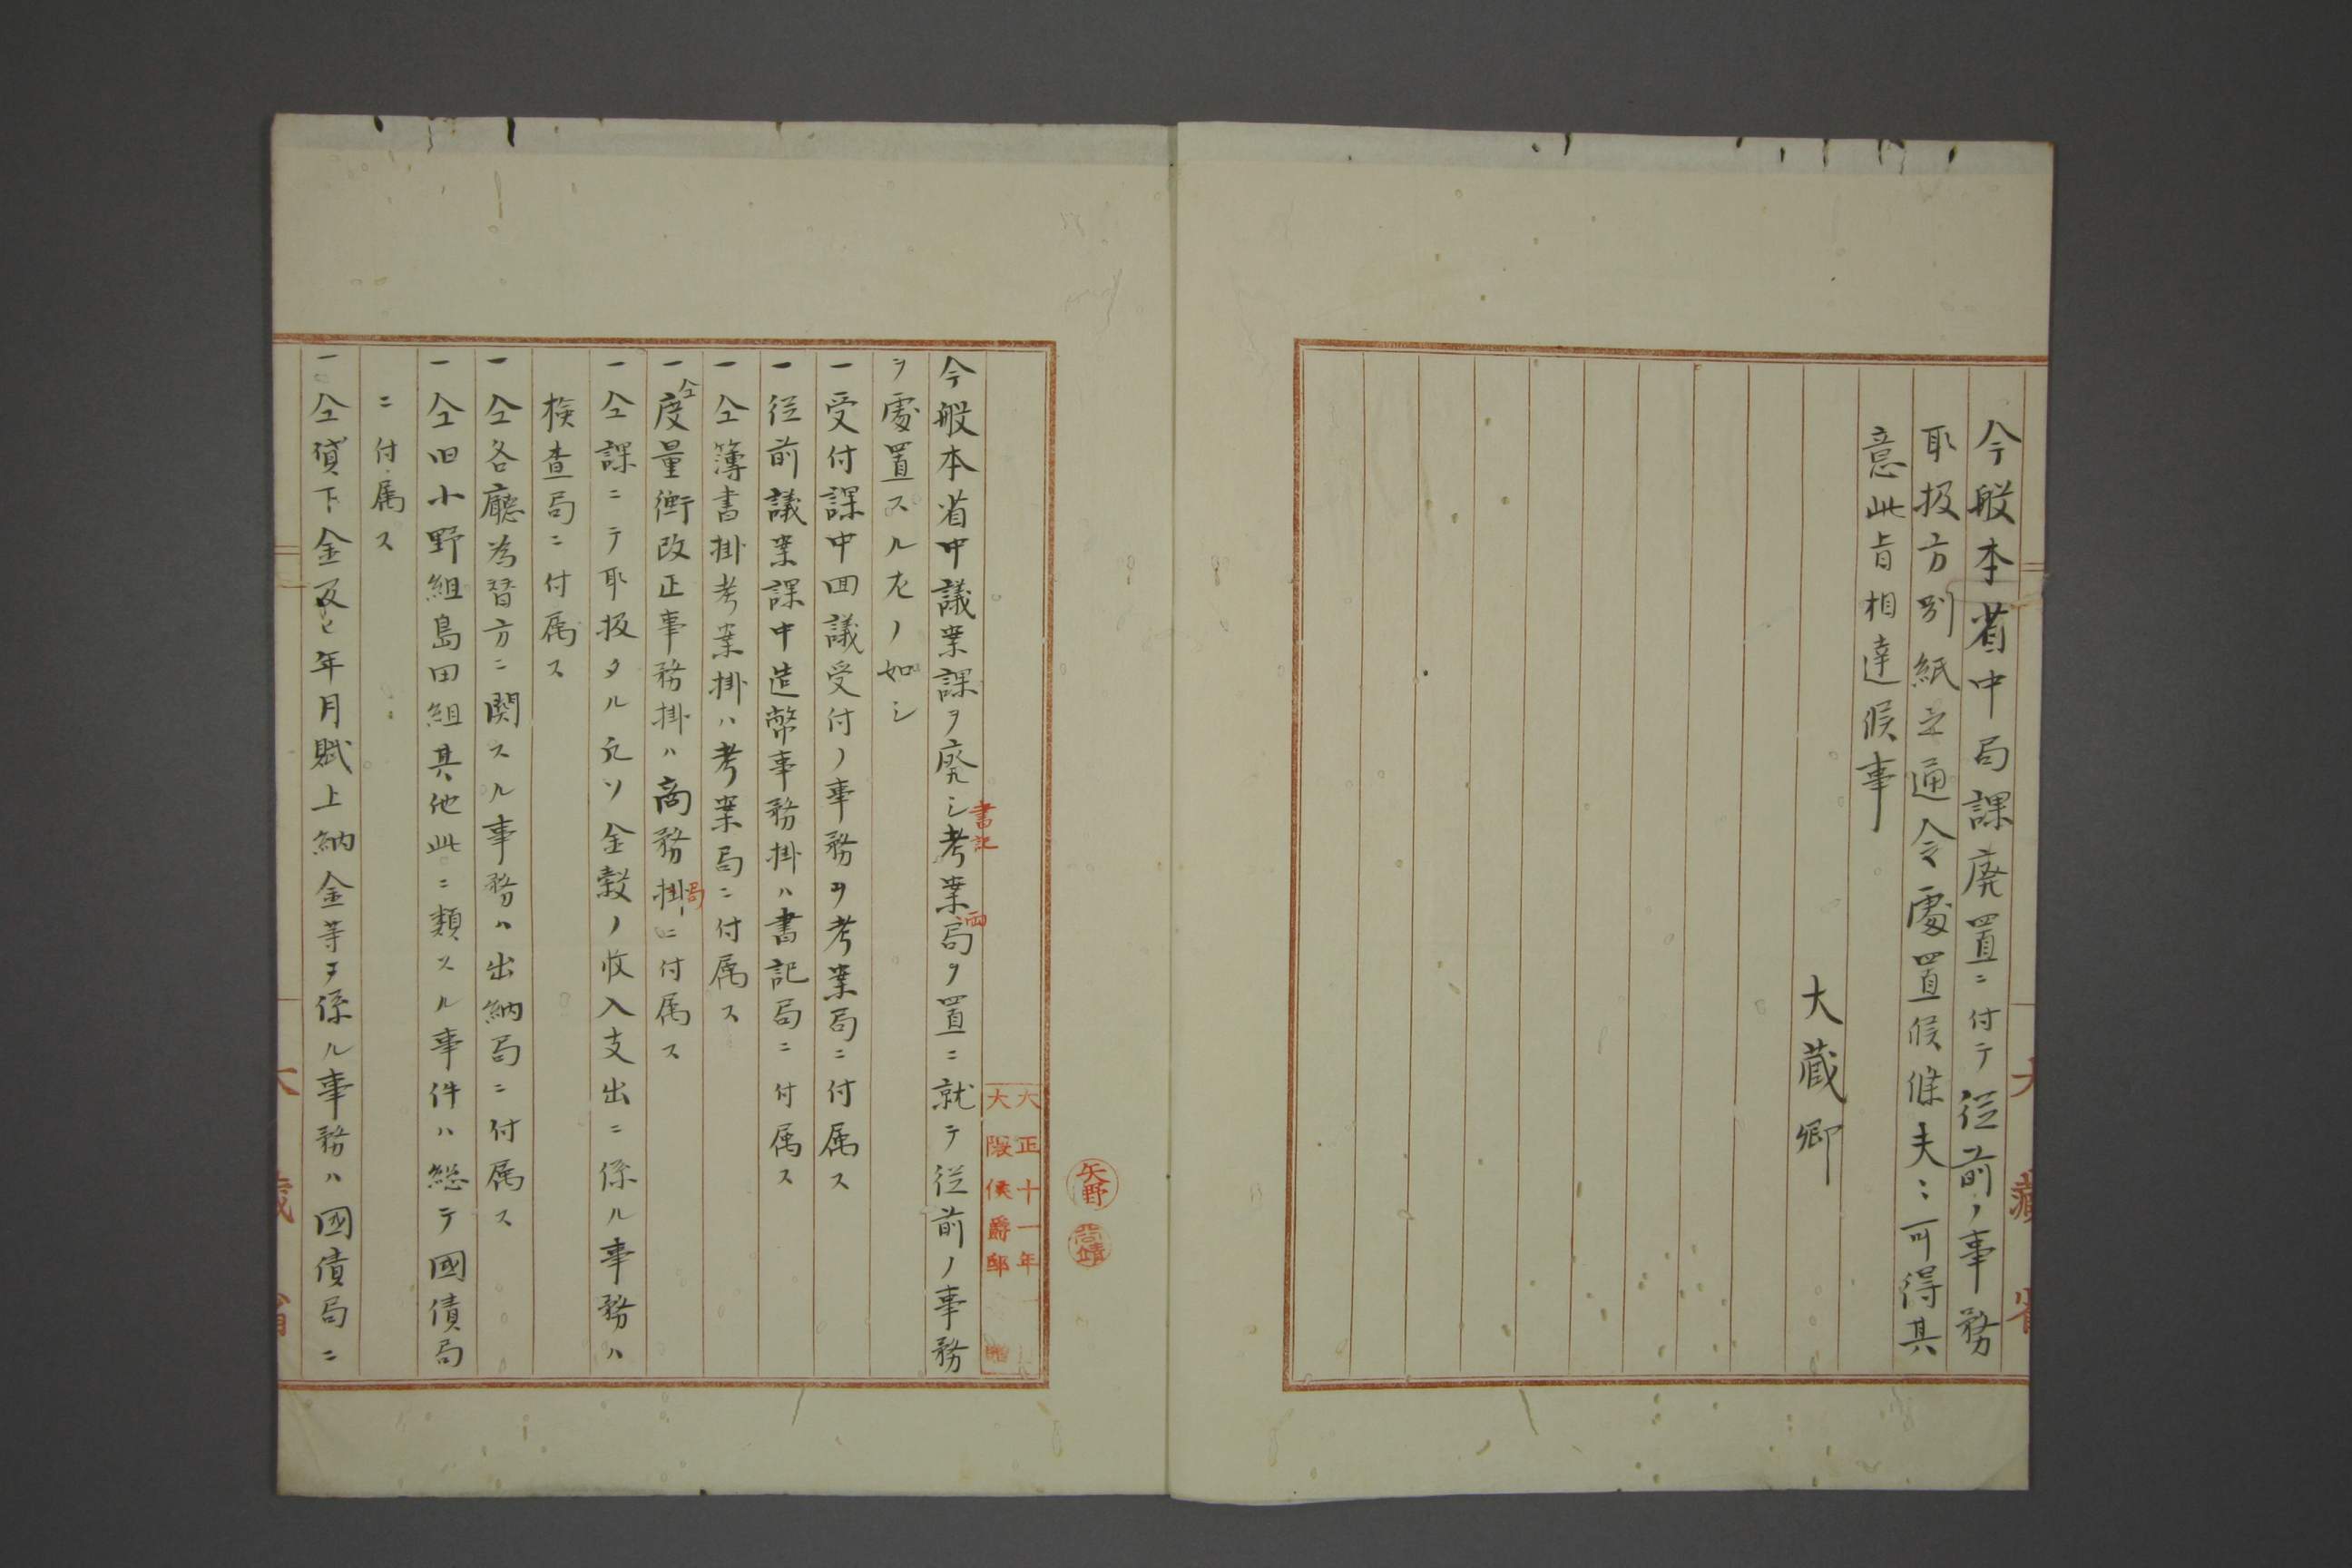 今般本省中局課廃置ニ付テ従前ノ事務
取扱方別紙之通令處置候條夫〻可得其
意此旨相達候事
大蔵卿
大藏省
矢野
大正十一年
大隈侯爵邸
今般本省中議案課ヲ廃シ考案局ヲ置ニ就テ従前ノ事務
書記
両
ヲ處置スル左ノ如シ
一受付課中回議受付ノ事務ヲ考案局ニ付属ス
一従前議案課中造幣事務掛ハ書記局ニ付属ス
一仝簿書掛考案掛ハ考案局ニ付属ス
一仝度量衡改正事務掛ハ商務掛ニ付属ス
局
一仝課ニテ取扱タル元ソ金穀ノ收入支出ニ係ル事務ハ
検査局ニ付属ス
一仝各廳為替方ニ関スル事務ハ出納局ニ付属ス
一仝旧小野組島田組其他此ニ類スル事件ハ総テ國債局
ニ付属ス
一仝貸下金及ヒ年月賦上納金等ヲ係ル事務ハ國債局ニ
大蔵省